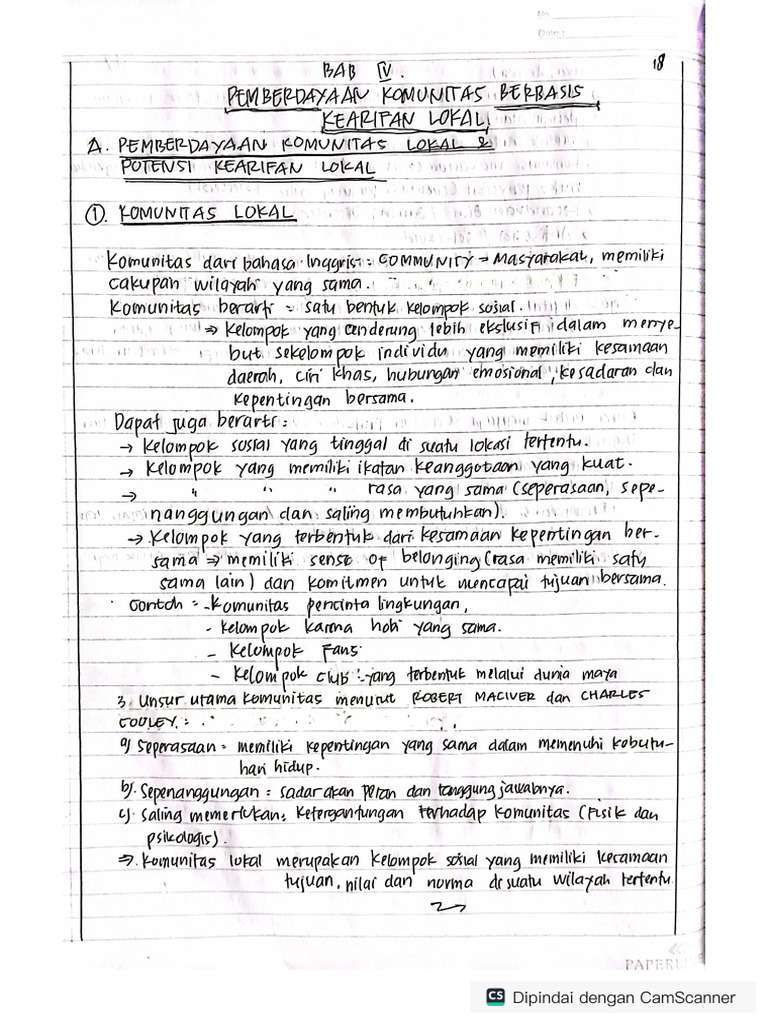 No.
Date :
18
BAB IV.
PEMBERDAYAAN KOMUNITAS BERBASIS
KEARIFAN LOKAL
A. PEMBERDAYAAN KOMUNITAS LOKAL &
POTENSI KEARIFAN LOKAL
①. KOMUNITAS LOKAL
Komunitas dari bahasa Inggris : COMMUNITY = Masyarakat, memiliki
cakupan wilayah yang sama.
Komunitas berarti = satu bentuk kelompok sosial.
⇒ Kelompok yang cenderung lebih ekslusif dalam menye-
but sekelompok individu yang memiliki kesamaan
daerah, ciri khas, hubungan emosional, kesadaran dan
kepentingan bersama.
Dapat juga berarti :
→ Kelompok sosial yang tinggal di suatu lokasi tertentu.
→ Kelompok yang memiliki ikatan keanggotaan yang kuat.
→ " " " rasa yang sama (seperasaan, sepe-
nanggungan dan saling membutuhkan).
→ Kelompok yang terbentuk dari kesamaan kepentingan ber-
sama ⇒ memiliki sense of belonging (rasa memiliki satu
sama lain) dan komitmen untuk mencapai tujuan bersama.
Contoh = - Komunitas pencinta lingkungan,
- Kelompok karena hobi yang sama.
- Kelompok Fans
- Kelompok club yang terbentuk melalui dunia maya
3. Unsur utama komunitas menurut ROBERT MACIVER dan CHARLES
COOLEY :
a) Seperasaan = memiliki kepentingan yang sama dalam memenuhi kebutu-
han hidup.
b). Sepenanggungan = sadar akan peran dan tanggung jawabnya.
c). Saling memerlukan = Ketergantungan terhadap komunitas (Fisik dan
psikologis).
⇒ Komunitas lokal merupakan kelompok sosial yang memiliki kesamaan
tujuan, nilai dan norma di suatu wilayah tertentu
CS Dipindai dengan CamScanner